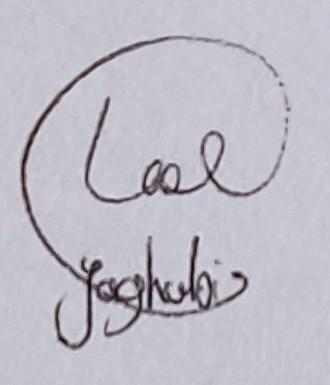 Leal
Yaghubi